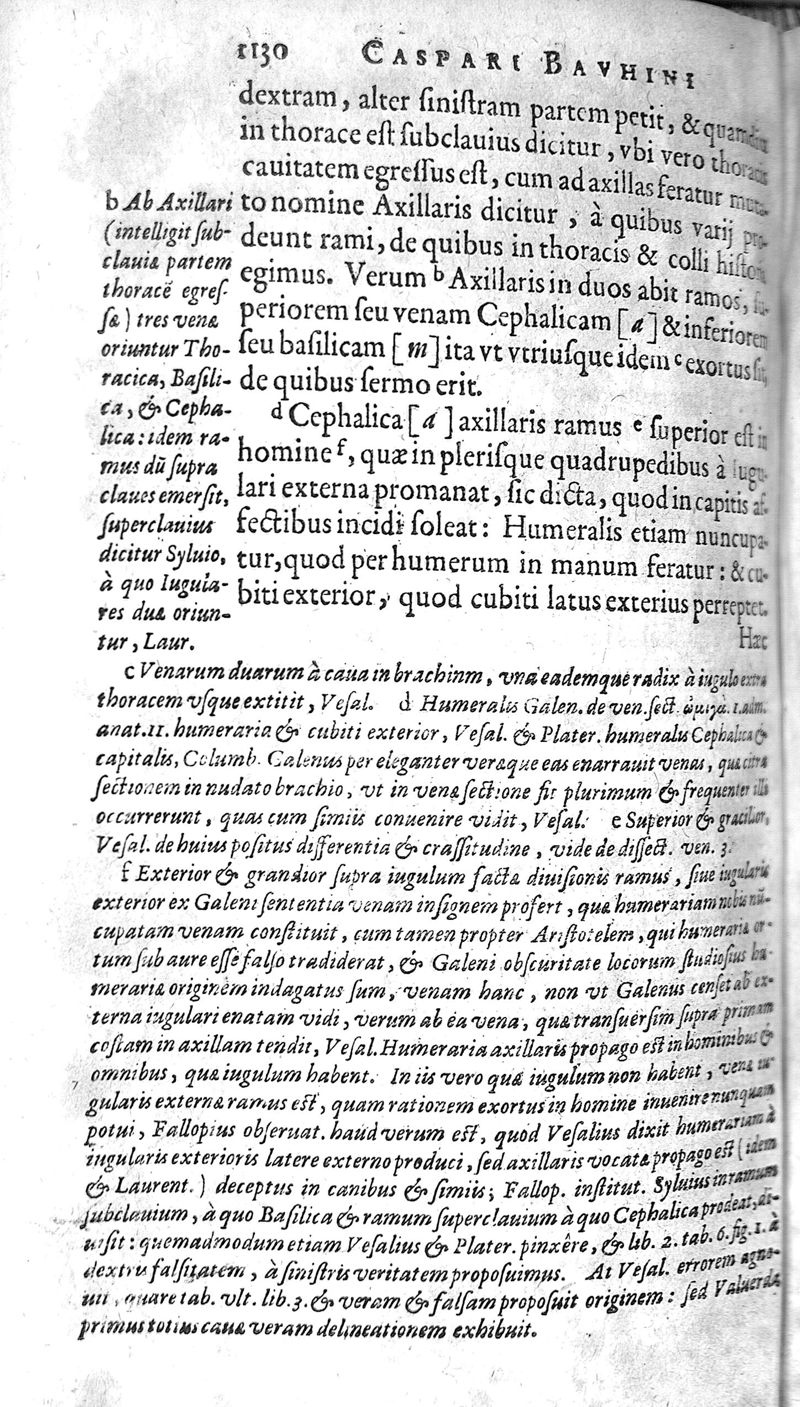 1130 CASPARI BAVHINI
dextram, alter ſiniſtram partem petit, & quamdiu
in thorace eſt ſubclauius dicitur, vbi vero thoracis
cauitatem egreſſus eſt, cum ad axillas feratur muta-
to nomine Axillaris dicitur, à quibus varij pro-
deunt rami, de quibus in thoracis & colli hiſtoria
egimus. Verum ᵇ Axillaris in duos abit ramos, ſu-
periorem ſeu venam Cephalicam [a] & inferiorem
ſeu baſilicam [m] ita vt vtriuſque idem ᶜ exortus ſit,
de quibus ſermo erit.
ᵈ Cephalica [a] axillaris ramus ᵉ ſuperior eſt in
homine ᶠ, quæ in pleriſque quadrupedibus à iugu-
lari externa promanat, ſic dicta, quod in capitis af-
fectibus incidi ſoleat: Humeralis etiam nuncupa-
tur, quod per humerum in manum feratur: & cu-
biti exterior, quod cubiti latus exterius perreptet.
Hæc
b Ab Axillari
(intelligit ſub-
clauiæ partem
thoracẽ egreſ-
ſæ) tres venæ
oriuntur Tho-
racica, Baſili-
ca, & Cepha-
lica: idem ra-
mus dũ ſupra
claues emerſit,
ſuperclauius
dicitur Syluio,
à quo Iugula-
res duæ oriun-
tur, Laur.
c Venarum duarum à caua in brachinm, vna eademque radix à iugulo extra
thoracem vſque extitit, Veſal. d Humeralis Galen. de ven. ſect. ὠμιγὰ. 1. adm.
anat. 11. humeraria & cubiti exterior, Veſal. & Plater. humeralus Cephalica &
capitalis, Columb. Galenus per eleganter veraque eas enarrauit venas, quæ citra
ſectionem in nudato brachio, vt in venæ ſectione fit plurimum & frequenter illi
occurrerunt, quas cum ſimiis conuenire vidit, Veſal. e Superior & gracilior,
Veſal. de huius poſitus differentia & craſſitudine, vide de diſſect. ven. 3.
f Exterior & grandior ſupra iugulum factæ diuiſionis ramus, ſiue iugularis
exterior ex Galeni ſententia venam inſignem profert, quæ humerariam nobis nũ-
cupatam venam conſtituit, cum tamen propter Ariſtotelem, qui humerariæ or-
tum ſub aure eſſe falſo tradiderat, & Galeni obſcuritate locorum ſtudioſius hu-
merariæ originem indagatus ſum, venam hanc, non vt Galenus cenſet ab ex-
terna iugulari enatam vidi, verum ab ea vena, quæ tranſuerſim ſupra primam
coſtam in axillam tendit, Veſal. Humeraria axillaris propago eſt in hominibus &
omnibus, quæ iugulum habent. In iis vero quæ iugulum non habent, venæ iu-
gularis externæ ramus eſt, quam rationem exortus in homine inuenire nunquam
potui, Fallopius obſeruat. haud verum eſt, quod Veſalius dixit humerariam à
iugularis exterioris latere externo produci, ſed axillaris vocatæ propago eſt (idem
& Laurent.) deceptus in canibus & ſimiis; Fallop. inſtitut. Syluius in ramum
ſubclauium, à quo Baſilica & ramum ſuperclauium à quo Cephalica prodeat, di-
uiſit: quemadmodum etiam Veſalius & Plater. pinxêre, & lib. 2. tab. 6. fig. 1. à
dextris falſitatem, à ſiniſtris veritatem propoſuimus. At Veſal. errorem agno-
uit, quare tab. vlt. lib. 3. & veram & falſam propoſuit originem: ſed Valuerda
primus totius cauæ veram delineationem exhibuit.